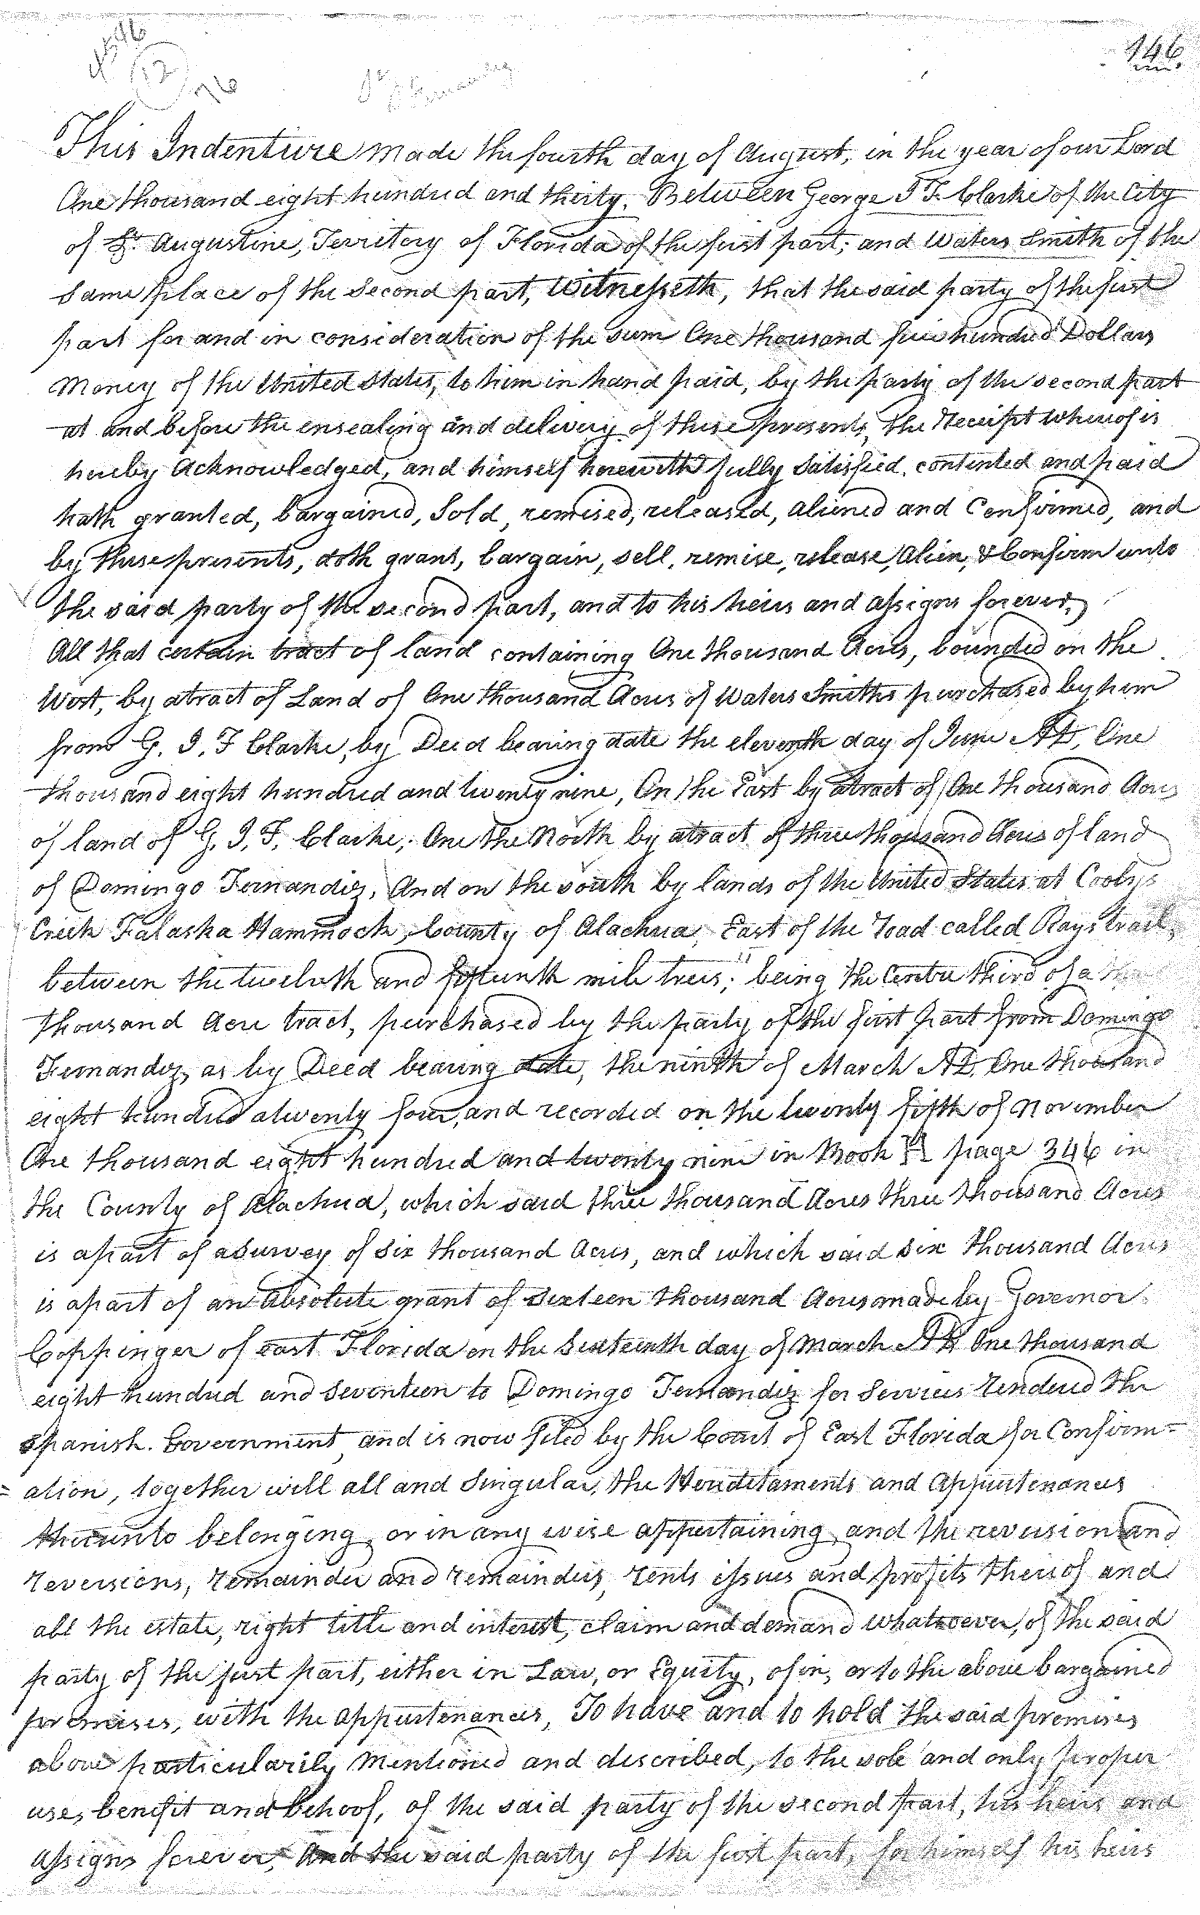 146
4546
12
76
This Indenture made the fourth day of August, in the year of our Lord
One thousand eight hundred and thirty, Between George I F. Clarke of the City
of St. Augustine, Territory of Florida of the first part; and Waters Smith of the
Same place of the Second part, Witnesseth, that the said party of the first
part for and in consideration of the sum One thousand five hundred Dollars
Money of the United States, to him in hand paid, by the party of the second part
at and before the ensealing and delivery of these presents, the Receipt whereof is
hereby Acknowledged, and himself herewith fully Satisfied, contented and paid
hath granted, bargained, Sold, remised, released, aliened and Confirmed, and
by these presents, doth grant, bargain, sell, remise, release, Alien, & Confirm unto
the said party of the second part, and to his heirs and assigns forever,
All that certain tract of land containing One thousand Acres, bounded on the
West, by a tract of Land of One thousand Acres of Waters Smiths purchased by him
from G. I. F Clarke, by Deed bearing date the eleventh day of June AD, One
thousand eight hundred and twenty nine, On the East by a tract of One thousand Acres
of land of G. I. F. Clarke; One the North by a tract of three thousand Acres of land
of Domingo Fernandiz, And on the south by lands of the United States at Coobys
Creek Talaska Hammock, County of Alachua, East of the road called Rays trail,
between the twelvth and fifteenth mile trees; being the Centre third of a
thousand Acre tract, purchased by the party of the first part from Domingo
Fernandiz, as by Deed bearing date, the ninth of March AD. One thousand
eight hundred atwenty four, and recorded on the twenty fifth of November
One thousand eight hundred and twenty nine in Book H page 346 in
the County of Alachua, which said three thousand Acres three thousand Acres
is apart of a Survey of Six thousand Acres, and which said six thousand Acres
is apart of an Absolute grant of Sixteen thousand Acres made by Governor
Coppinger of east Florida on the Sixteenth day of March AD One thousand
eight hundred and Seventeen to Domingo Fernandiz for Services rendered the
Spanish Government, and is now filed by the Court of East Florida for Confirm=
=ation, together will all and Singular, the Hereditaments and Appurtenances
thereunto belonging, or in any wise appertaining, and the reversion and
reversions, remainder and remainders, rents issues and profits thereof and
all the estate, right title and interest, claim and demand whatsoever, of the said
party of the first part, either in Law, or Equity, of in, or to the above bargained
premises, with the appurtenances, To have and to hold the said premises
above particularily Mentioned and described, to the sole and only proper
use, benefit and behoof, of the said party of the second part, his heirs and
assigns forever, And the said party of the first part, for himself his heirs